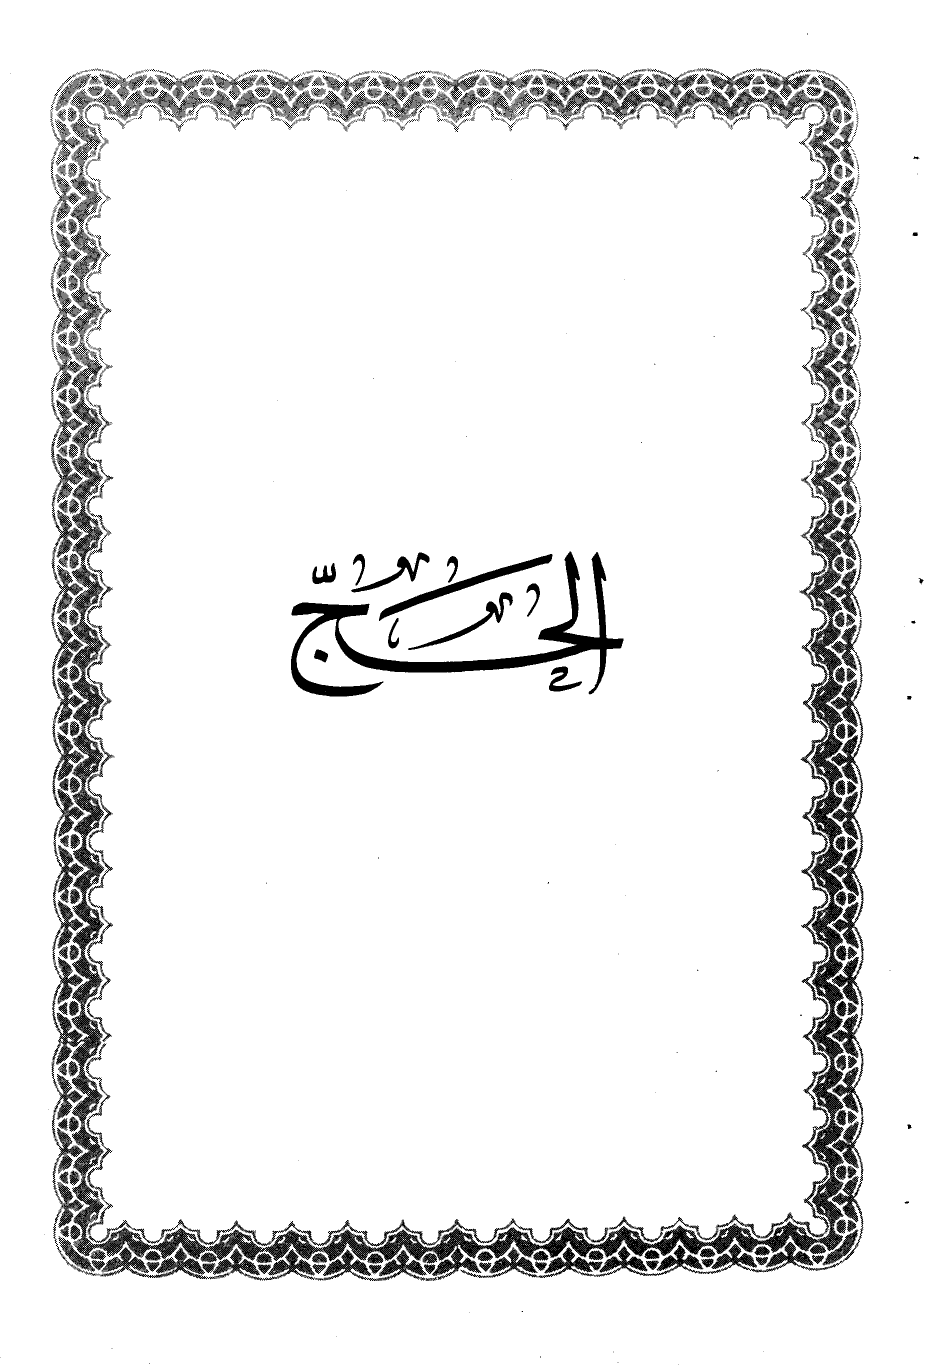 الحَجّ